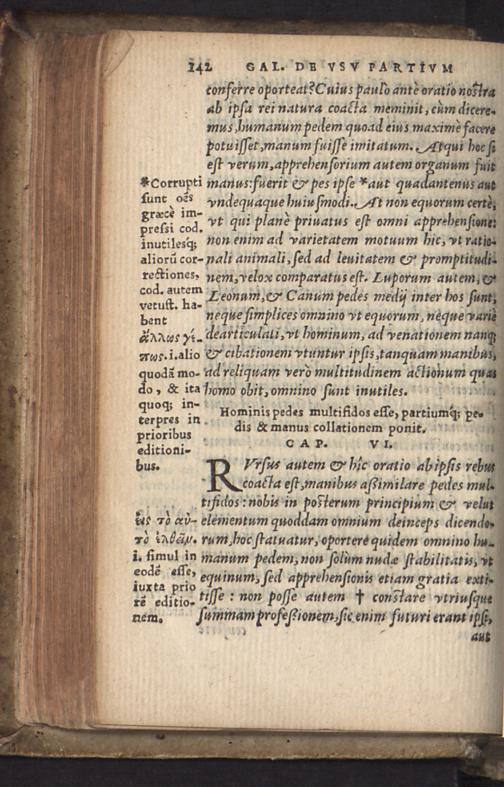 142 GAL. DE VSV PARTIVM
conferre oporteat? Cuius paulo antè oratio nostra
ab ipsa rei natura coacta meminit, cùm dicere-
mus, humanum pedem quoad eius maximè facere
potuisset, manum fuisse imitatum. Atqui hoc si
est verum, apprehensorium autem organum fuit
manus: fuerit & pes ipse *aut quadantenus aut
vndequaque huiusmodi. At non equorum certè,
vt qui planè priuatus est omni apprehensione:
non enim ad varietatem motuum hic, vt ratio-
nali animali, sed ad leuitatem & promptitudi-
nem, velox comparatus est. Luporum autem, &
Leonum, & Canum pedes medij inter hos sunt,
neque simplices omnino vt equorum, neque variè
dearticulati, vt hominum, ad venationem nanq;
& cibationem vtuntur ipsis, tanquam manibus,
ad reliquam verò multitudinem actionum quas
homo obit, omnino sunt inutiles.
*Corrupti
sunt oẽs
græcè im-
pressi cod.
inutilesq;
aliorũ cor-
rectiones,
cod. autem
vetust. ha-
bent
ἄλλως γέ-
πως. i. alio
quodã mo-
do, & ita
quoq; in-
terpres in
prioribus
editioni-
bus.
Hominis pedes multifidos esse, partiumq; pe-
dis & manus collationem ponit.
CAP. VI.
RVrsus autem & hîc oratio ab ipsis rebus
coacta est, manibus aßimilare pedes mul-
tifidos: nobis in posterum principium & velut
elementum quoddam omnium deinceps dicendo-
rum, hoc statuatur, oportere quidem omnino hu-
manum pedem, non solùm nudæ stabilitatis, vt
equinum, sed apprehensionis etiam gratia exti-
tisse: non posse autem † constare vtriusque
summam profeßionem, sic enim futuri erant ipse,
τὸ αυ-
τὸ
i. simul in
eodẽ esse,
iuxta prio
rẽ editio-
nem.
aut